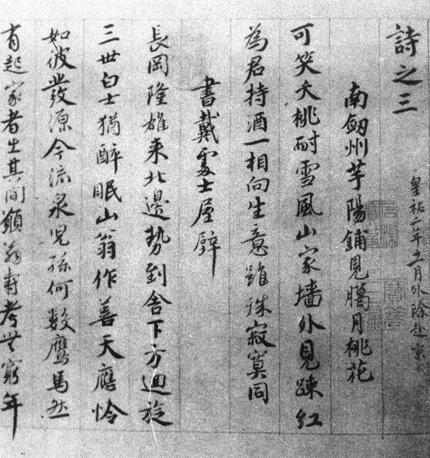 詩之三
皇祐二年十一月外除赴京
南劔州芋陽鋪見臘月桃花
可笑夭桃耐雪風山家墻外見踈紅
為君持酒一相向生意雖殊寂寞同
書戴處士屋壁
長岡隆雄來北邊勢到舍下方迴旋
三世白士猶醉眠山翁作善天應怜
如彼發源今流泉兒孫何數鷹馬然
有起家者出其間願翁壽考無窮年